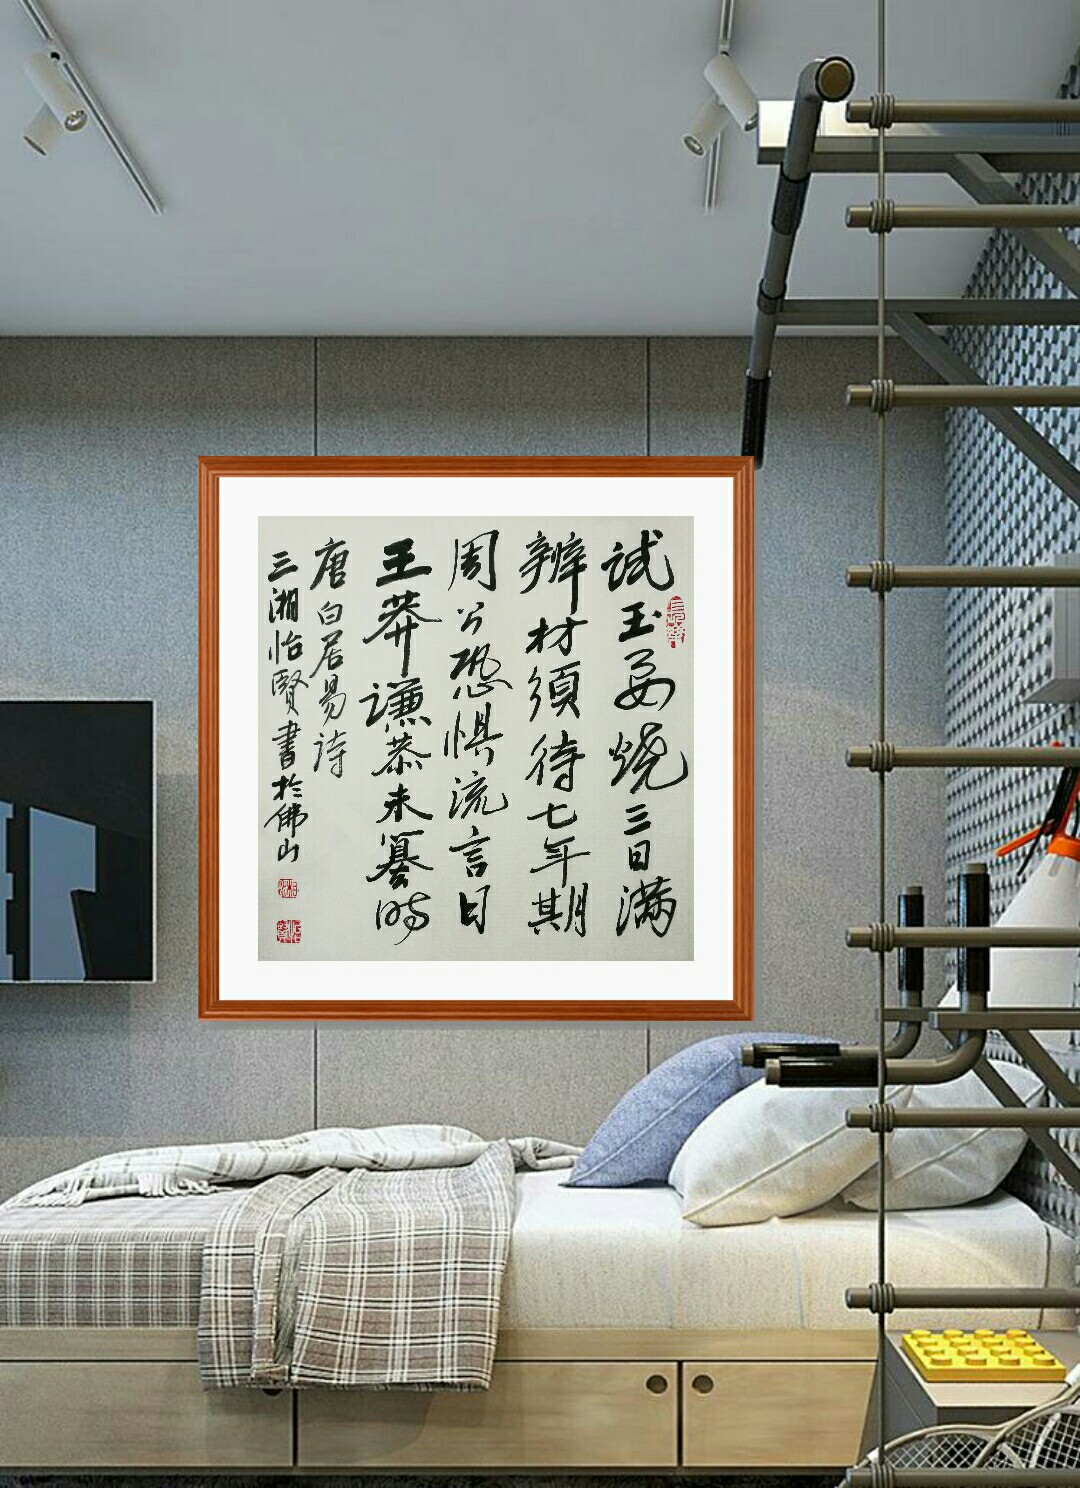 试玉要烧三日满
辨材須待七年期
周公恐惧流言日
王莽谦恭未篡时
唐白居易诗
三湘怡賢書於佛山